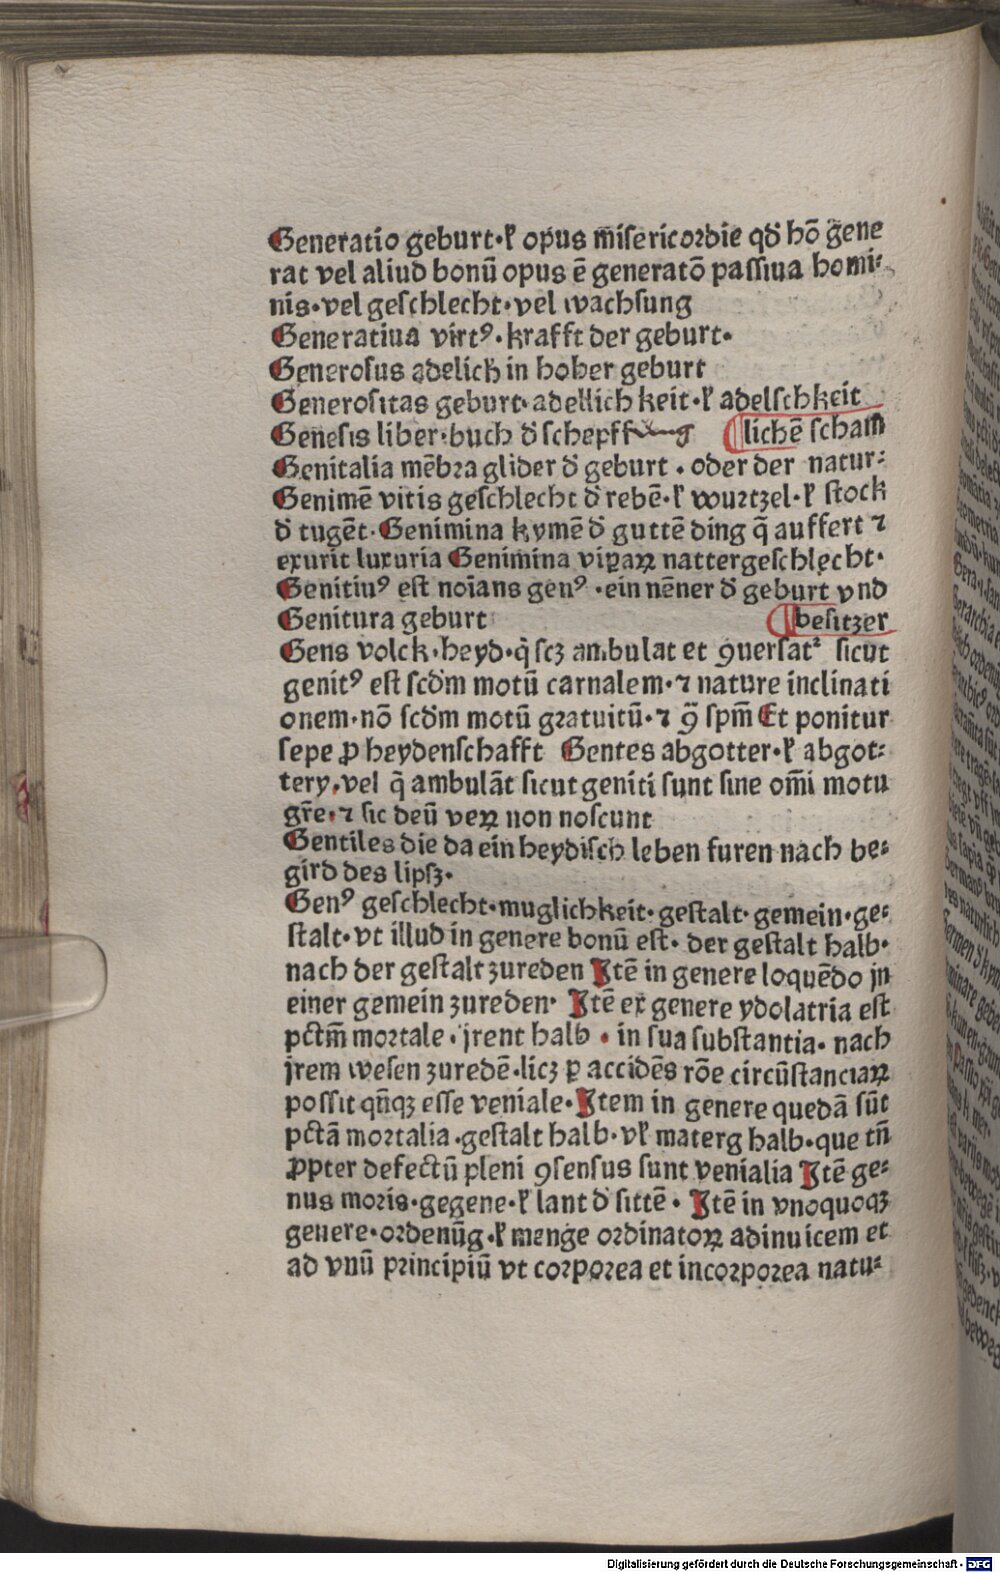 Generatio geburt·ł opus m̄isericordie qđ hō gene
rat vel aliud bonū opus ē generatō passiua homi⸗
nis·vel geschlecht·vel wachsung
Generatiua virt⁹·krafft der geburt·
Generosus adelich in hoher geburt
Generositas geburt·adellich keit·ł adelschkeit
Genesis liber·buch đ schepffung lichē scham
Genitalia mēbra glider đ geburt · oder der natur⸗
Genimē vitis geschlecht đ rebē·ł wurtzel·ł stock
đ tugēt·Genimina kymē đ guttē ding q̄ auffert ⁊
exurit luxuria Genimina viꝑaꝝ nattergeschlecht·
Genitiu⁹ est noīans gen⁹ ·ein nēner đ geburt vnd
Genitura geburt besitzer
Gens volck·heyd·q̄ scꝫ ambulat et ꝯuersatᵉ sicut
genit⁹ est scđm motū carnalem·⁊ nature inclinati
onem·nō scđm motū gratuitū·⁊ ꝯ̄ spm̄ Et ponitur
sepe ꝓ heydenschafft Gentes abgotter·ł abgot⸗
tery·vel q̄ ambulāt sicut geniti sunt sine om̄i motu
gr̄e·⁊ sic deū veꝝ non noscunt
Gentiles die da ein heydisch leben furen nach be⸗
gird des lipſꝫ·
Gen⁹ geschlecht·muglichkeit·gestalt·gemein·ge⸗
stalt·vt illud in genere bonū est· der gestalt halb·
nach der gestalt zureden Itē in genere loquēdo jn
einer gemein zureden· Itē ex genere ydolatria est
pctm̄ mortale·jrent halb · in sua substantia· nach
jrem wesen zuredē·licꝫ ꝑ accidēs rōe circūstanciaꝝ
possit qn̄qꝫ esse veniale·Item in genere quedā sūt
pctā mortalia·gestalt halb·vł materg halb·que tn̄
ꝓpter defectū pleni ꝯsensus sunt venialia Itē ge⸗
nus moris·gegene·ł lant đ sittē· Itē in vnoquoqꝫ
genere·ordenūg·ł menge ordinatoꝝ adinuicem et
ad vnū principiū vt corporea et incorporea natu⸗
Digitalisierung gefördert durch die Deutsche Forschungsgemeinschaft - DFG